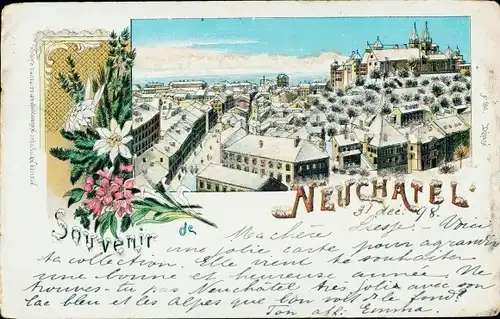 NEUCHÂTEL
Souvenir de
31 déc. 98.
Ma chère Voici
une jolie carte pour agrandir
ta collection. Elle vient te souhaiter
une bonne et heureuse année. Ne
trouves-tu pas Neuchâtel très jolie avec son
lac bleu et les Alpes que l'on voit de le fond?
Ton aff. Emma.